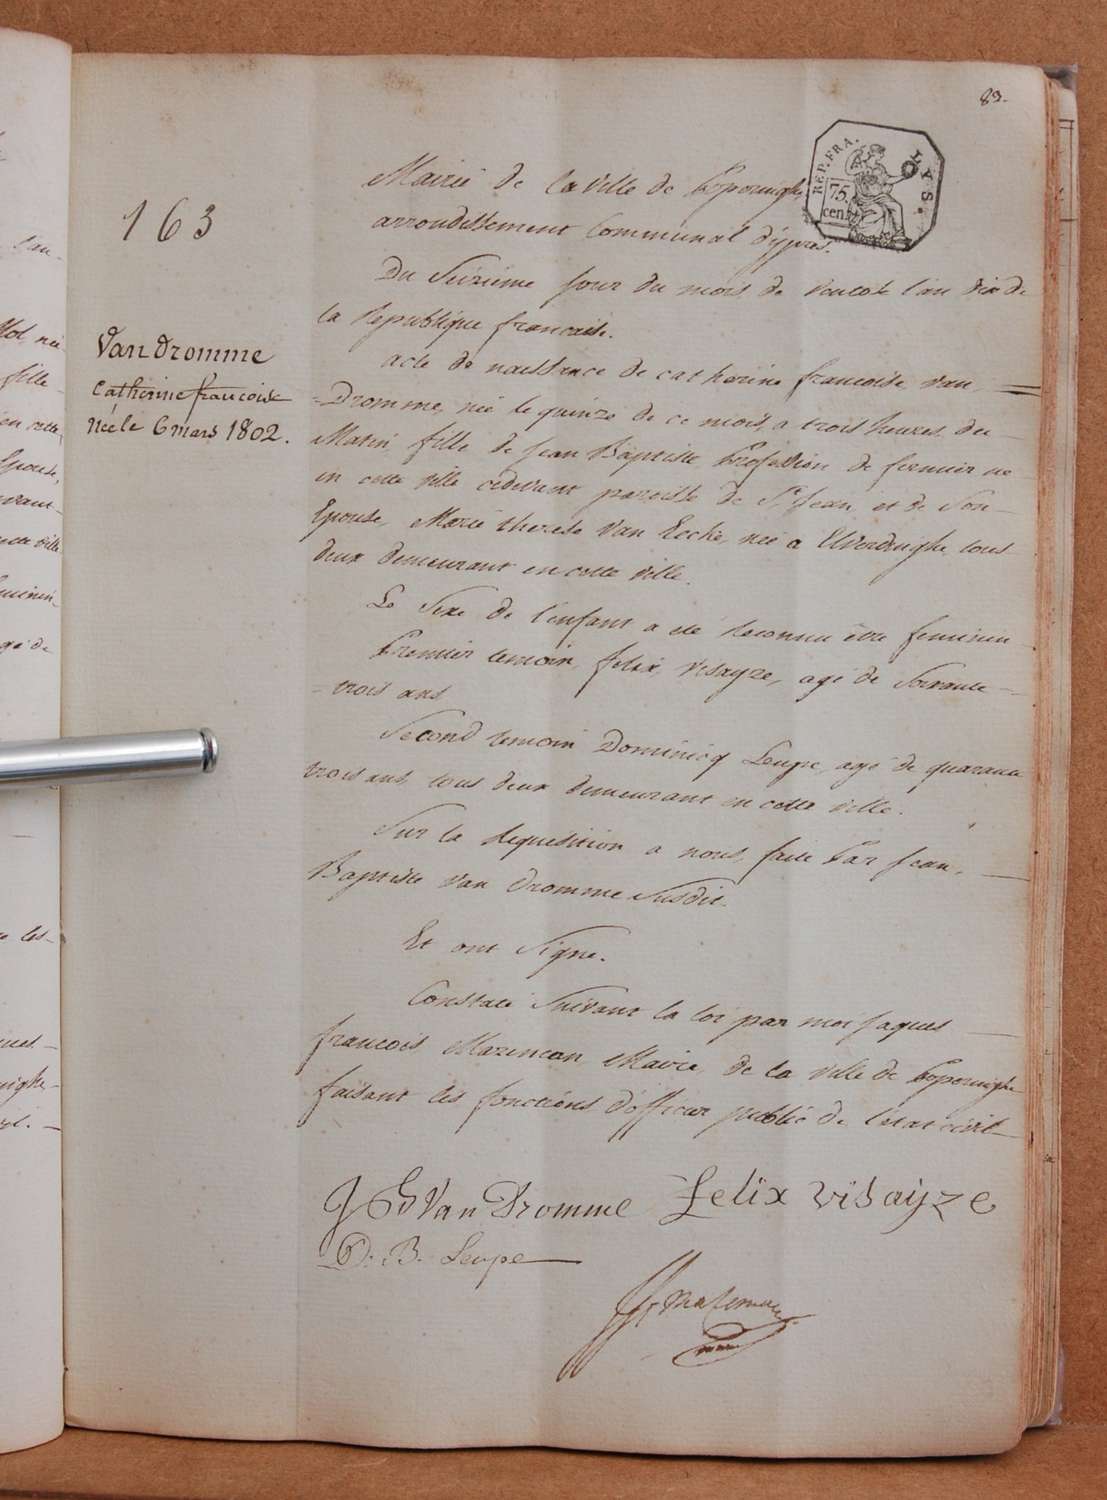 83.
REP. FRA. LYS.
75 cent.
163
Mairie de la ville de Poperinghe
arrondissement Communal d'ypres.
Du Seizieme jour du mois de ventose l'an dix de
la Republique francaise.
Van Dromme
Catherine francoise
Née le 6 mars 1802.
acte de naissance de catherine francoise van
Dromme, née le quinze de ce mois, a trois heures du
Matin, fille de jean Baptiste Profession de fermier né
en cette ville cidevant paroisse de St. Jean, et de Son
Epouse, Marie therese Van Eecke, née a Elverdinghe, tous
deux demeurant en cette ville.
Le Sexe de l'enfant a été Reconnu être feminin
Premier temoin, felix, visayze, agé de Soixante
trois ans
Second temoin Dominicq Leupe, agé de quarante
trois ans, tous deux demeurant en cette ville.
Sur la Requisition a nous, faite Par Jean,
Baptiste Van Dromme Susdit.
Et ont Signe.
Constaté Suivant la loi par moi jaques
francois Mazeman, Maire, de la ville de Poperinghe
faisant les fonctions d'officier public de l'etat civil
J B Van Dromme Felix Visayze
D. B. Leupe